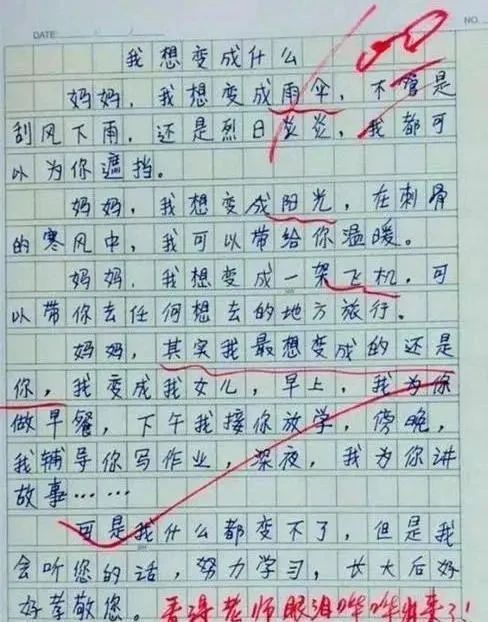 DATE: NO.
我想变成什么
妈妈，我想变成雨伞，不管是
刮风下雨，还是烈日炎炎，我都可
以为你遮挡。
妈妈，我想变成阳光，在刺骨
的寒风中，我可以带给你温暖。
妈妈，我想变成一架飞机，可
以带你去任何想去的地方旅行。
妈妈，其实我最想变成的还是
你，我变成我女儿，早上，我为你
做早餐，下午我接你放学，傍晚，
我辅导你写作业，深夜，我为你讲
故事……
可是我什么都变不了，但是我
会听您的话，努力学习，长大后好
好孝敬您。看得老师眼泪哗哗出来了！